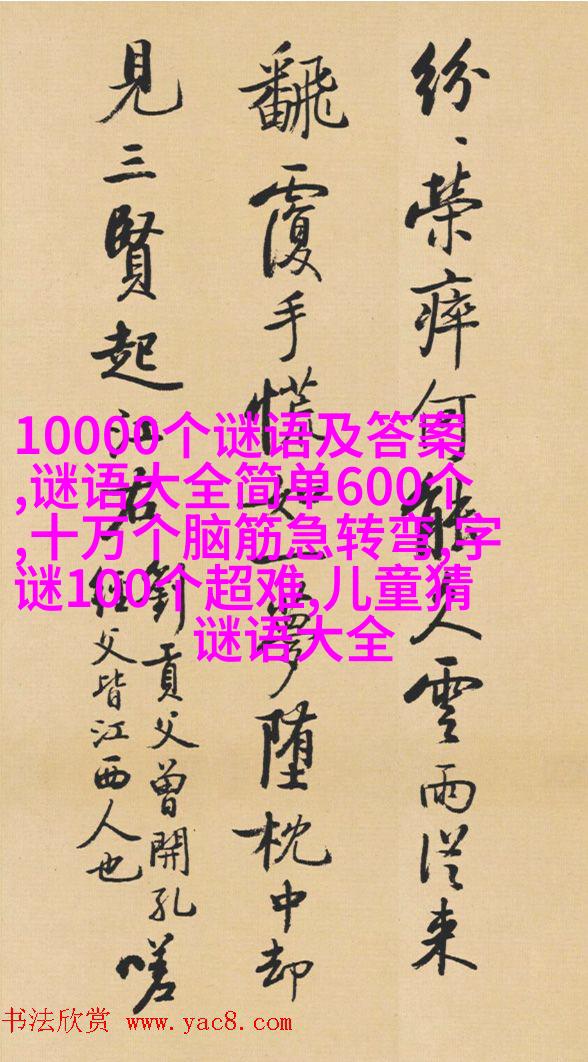 紛、榮瘁何能久雲雨從来
翻覆手慌如一夢堕枕中却
見三賢起江右劉貢父曾開孔
經父皆江西人也嗟
10000个谜语及答案
,谜语大全简单600个
,十万个脑筋急转弯,字
谜100个超难,儿童猜
谜语大全
书法欣赏 www.yac8.com